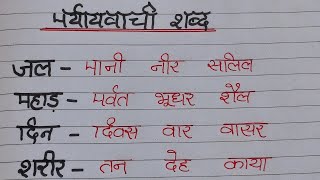 पर्यायवाची शब्द
जल - पानी नीर सलिल
पहाड़ - पर्वत भूधर शैल
दिन - दिवस वार वासर
शरीर - तन देह काया